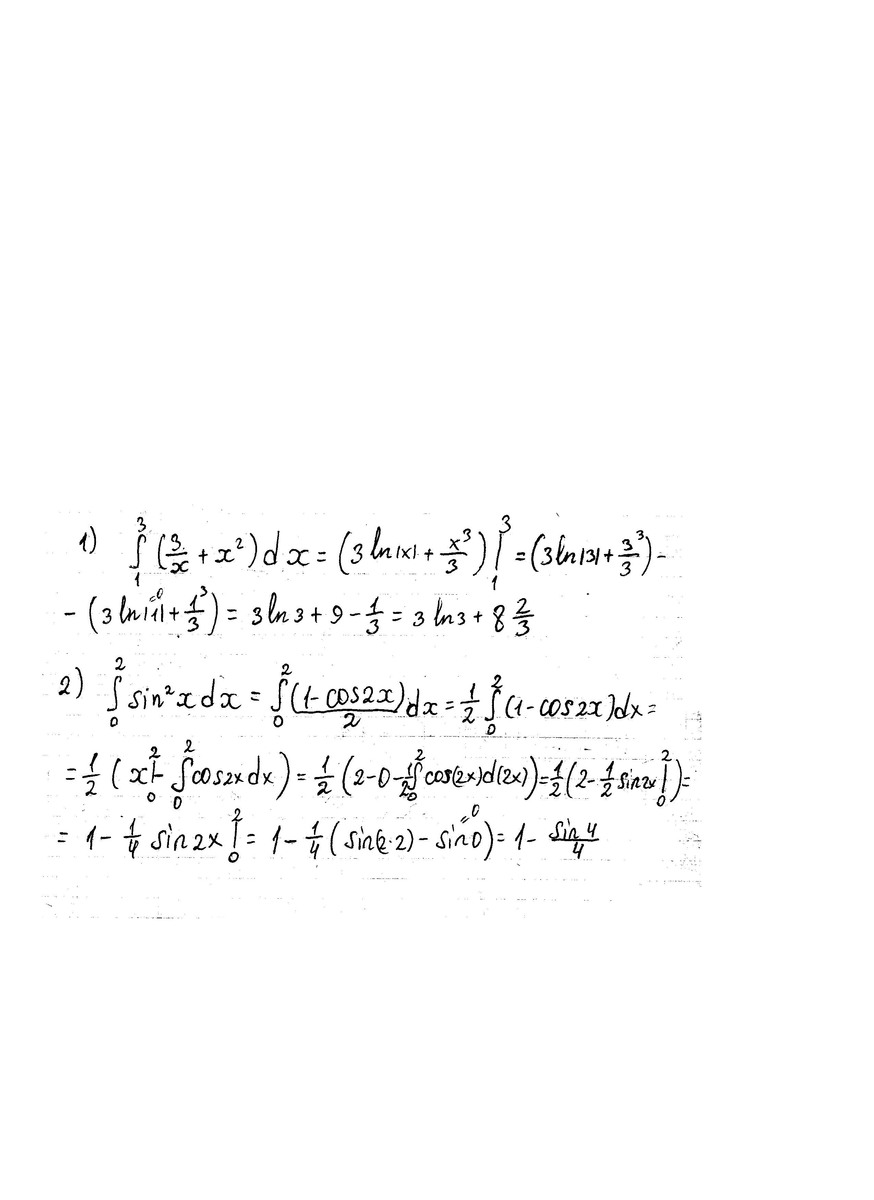 1) ∫₁³ (3/x + x²) dx = (3 ln|x| + x³/3) |₁³ = (3 ln|3| + 3³/3) -
- (3 ln|1|⁼⁰ + 1³/3) = 3 ln 3 + 9 - 1/3 = 3 ln 3 + 8 2/3
2) ∫₀² sin²x dx = ∫₀² (1 - cos 2x)/2 dx = 1/2 ∫₀² (1 - cos 2x) dx =
= 1/2 (x|₀² - ∫₀² cos 2x dx) = 1/2 (2 - 0 - 1/2 ∫₀² cos(2x) d(2x)) = 1/2 (2 - 1/2 sin 2x |₀²) =
= 1 - 1/4 sin 2x |₀² = 1 - 1/4 (sin(2·2) - sin 0⁼⁰) = 1 - sin 4/4